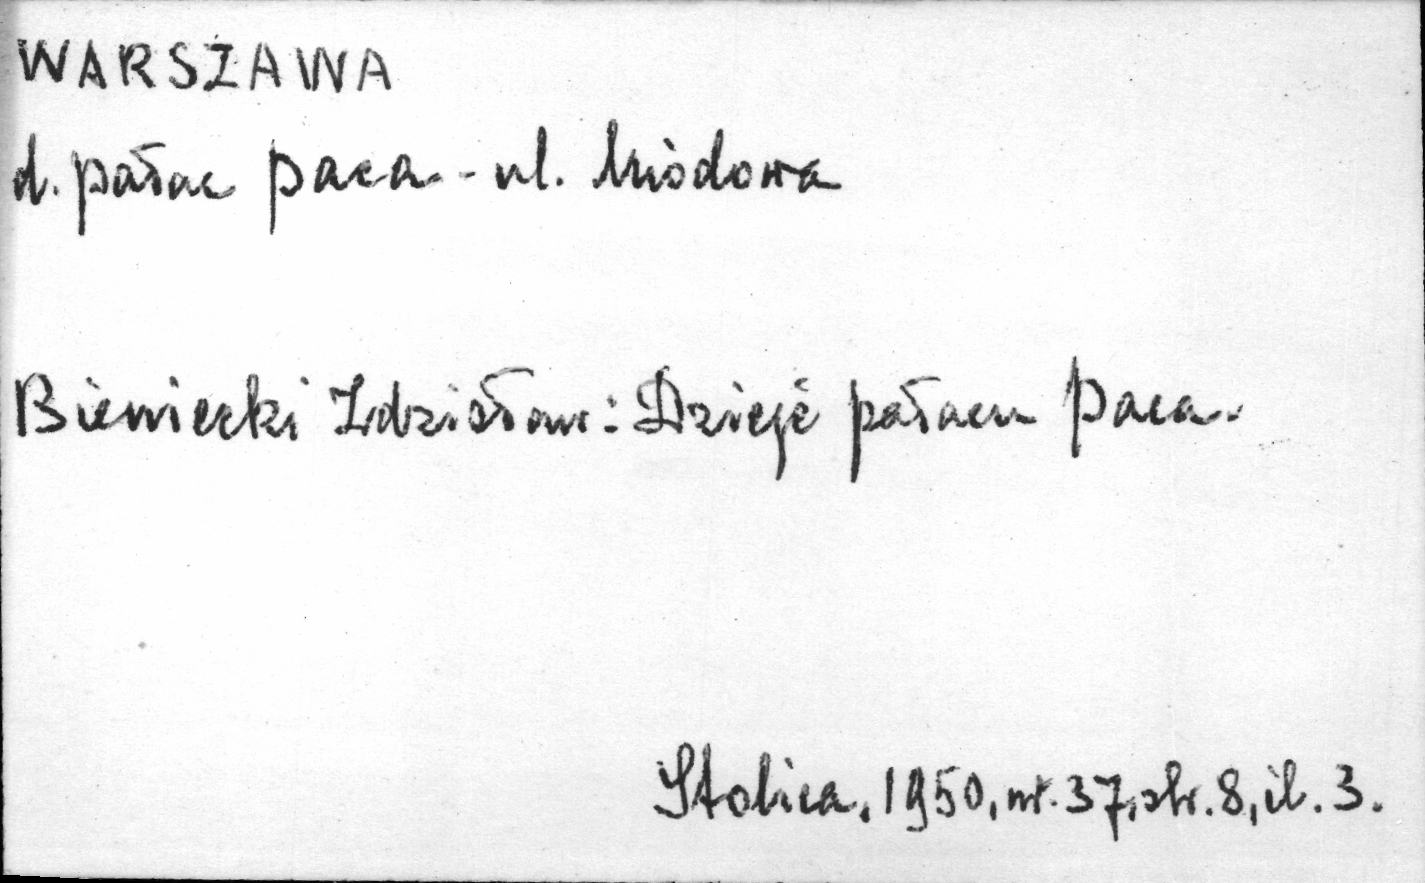 WARSZAWA
d. pałac Paca - ul. Miodowa
Bieniecki Zdzisław: Dzieje pałacu Paca.
Stolica, 1950, nr. 37, str. 8, il. 3.